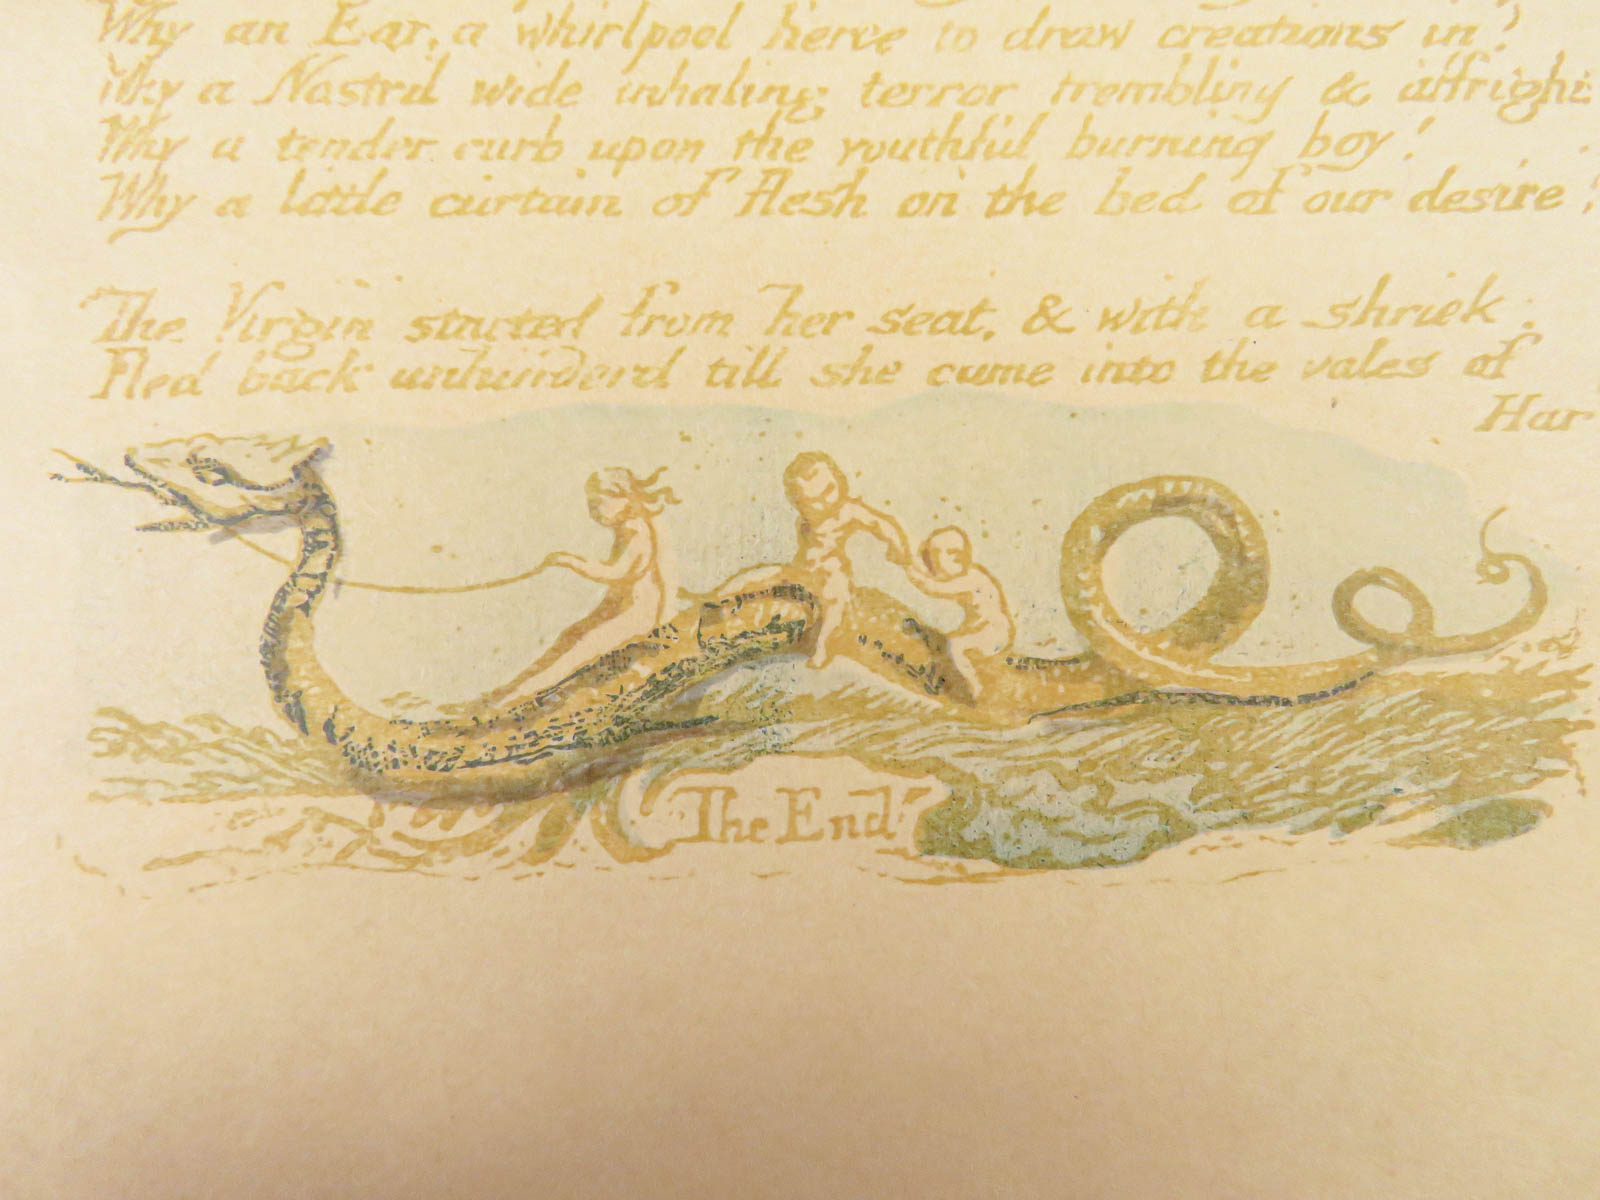 Why an Ear, a whirlpool fierce to draw creations in?
Why a Nostril wide inhaling terror trembling & affright
Why a tender curb upon the youthful burning boy!
Why a little curtain of flesh on the bed of our desire!
The Virgin started from her seat, & with a shriek.
Fled back unhinderd till she came into the vales of
Har
The End